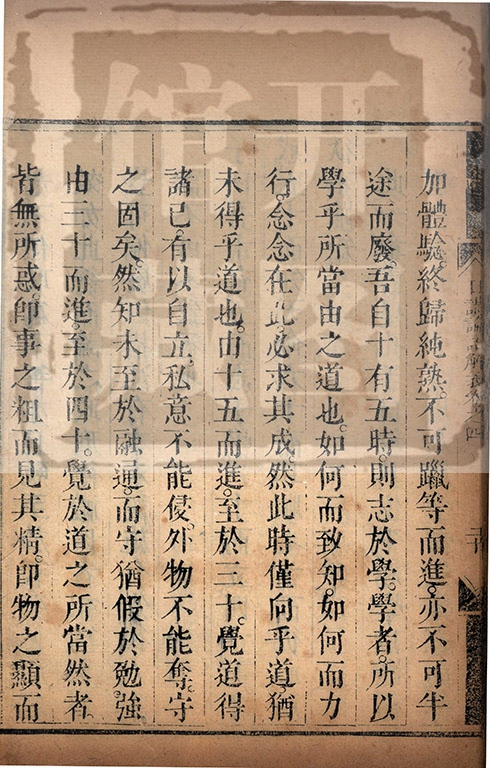 加體驗。終歸純熟。不可躐等而進。亦不可半
途而廢。吾自十有五時。則志於學。學者。所以
學乎所當由之道也。如何而致知。如何而力
行。念念在此。必求其成。然此時僅向乎道。猶
未得乎道也。由十五而進。至於三十。覺道得
諸己。有以自立。私意不能侵。外物不能奪。守
之固矣。然知未至於融通。而守猶假於勉强
由三十而進。至於四十。覺於道之所當然者
皆無所惑。卽事之粗而見其精。卽物之顯而